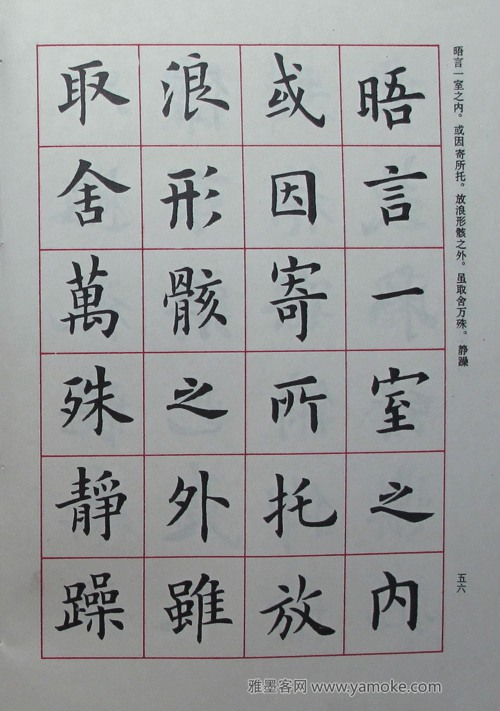 晤言一室之内。或因寄所托。放浪形骸之外。虽取舍万殊。静躁
晤言一室之内
或因寄所托放
浪形骸之外雖
取舍萬殊靜躁
五六
雅墨客网 www.yamoke.com